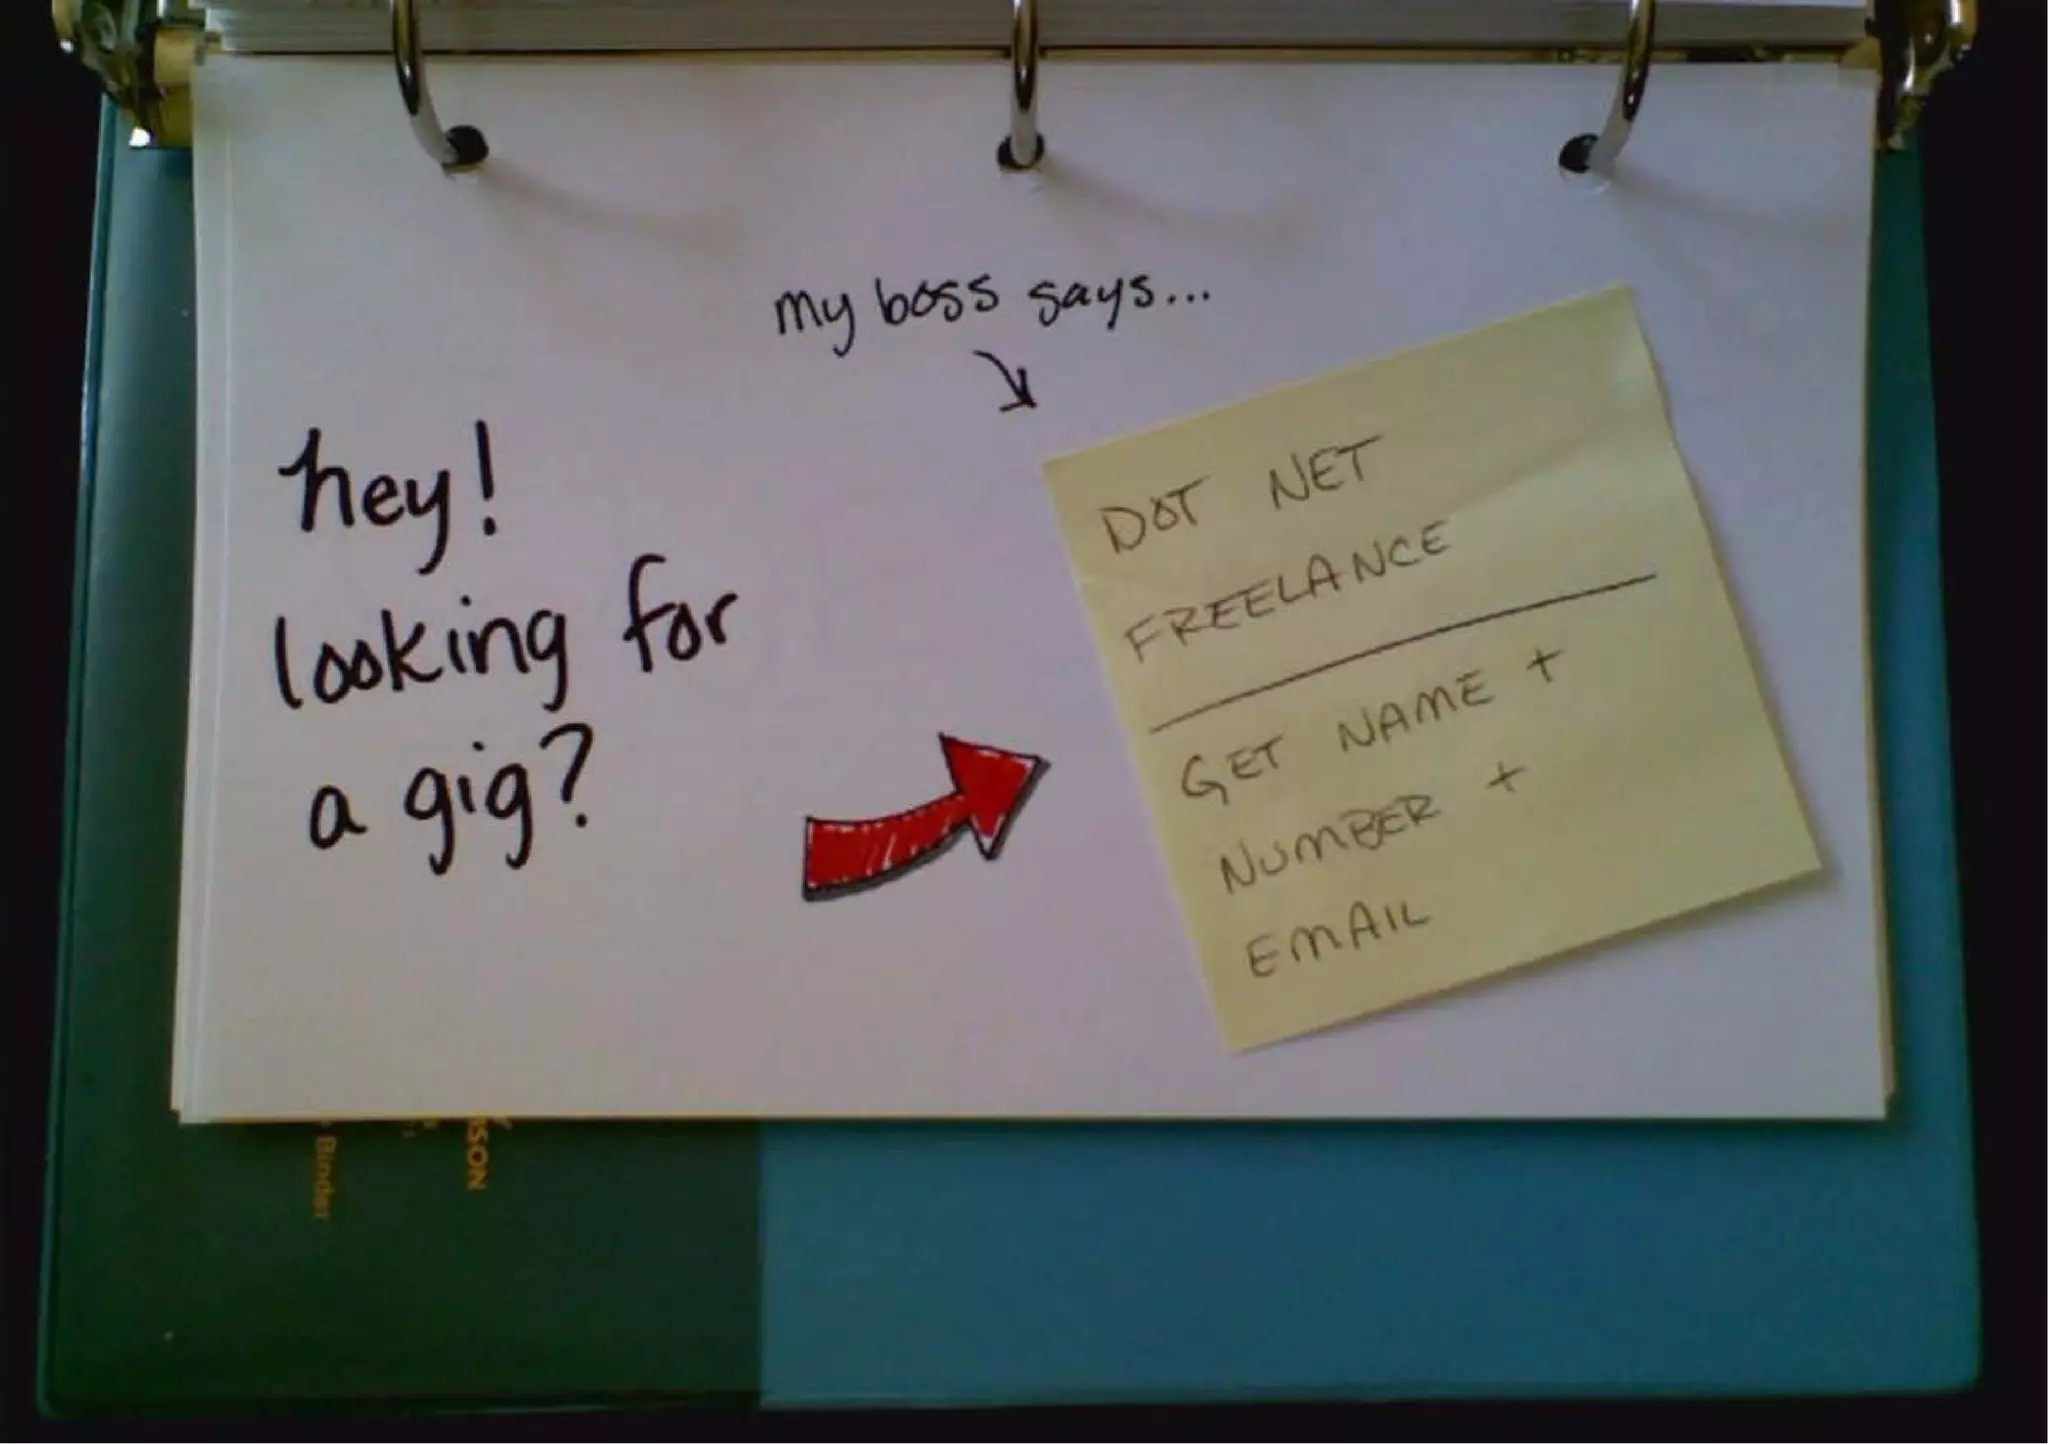 my boss says...
hey!
looking for
a gig?
DOT NET
FREELANCE
GET NAME +
NUMBER +
EMAIL
Binder